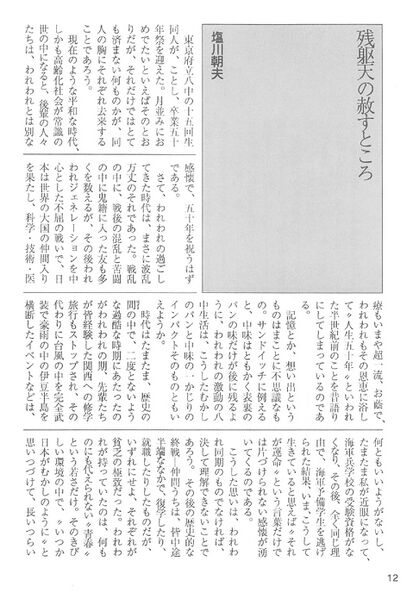 残躯天の赦すところ
塩川朝夫
東京府立八中の十五回生
同人が、ことし、卒業五十
年祭を迎えた。月並みにお
めでたいといえばそのとお
りだが、それだけではとて
も済まない何ものかが、同
人の胸にそれぞれ去来する
ことであろう。
現在のような平和な時代、
しかも高齢化社会が常識の
世の中になると、後輩の人々
たちは、われわれとは別な
感懐で、五十年を祝うはず
である。
さて、われわれの過ごし
てきた時代は、まさに波乱
万丈のそれであった。戦乱
の中に、戦後の混乱と苦闘
の中に鬼籍に入った友も多
くを数えるが、その後われ
われジェネレーションを中
心とした不屈の戦いで、日
本は世界の大国の仲間入り
を果たし、科学・技術・医
療もいまや〝超〟一流。お蔭で、
われわれもその恩恵に浴し
て〝人生五十年〟といわれ
た半世紀前のことを昔語り
にしてしまっているのであ
る。
記憶とか、想い出という
ものはまことに不思議なも
の。サンドイッチに例える
と、中味はともかく表裏の
パンの味だけが後に残るよ
うに、われわれの激動の八
中生活は、こうしたむかし
のパンと中味の一かじりの
インパクトそのものともい
えようか。
時代はたまたま、歴史の
間の中で、二度とないよう
な過酷な時期にあたったの
がわれわれの期、先輩たち
が皆経験した関西への修学
旅行もストップされ、その
代わりに台風の中を完全武
装で豪雨の中の伊豆半島を
横断したイベントなどは、
何ともいいようがないし、
たまたま私が近眼になって、
海軍兵学校の受験資格がな
くなり、その後、全く同じ理
由で、海軍予備学生を逃げ
られた結果、いま、こうして
生きていると思えば〝それ
が運命〟という言葉だけで
は片づけられない感懐が湧
いてくるのである。
こうした思いは、われわ
れ同期のものでなければ
決して理解できないことで
あろう。その後の歴史的な
終戦、仲間うちは、皆中途
半端ななかで、復学したり、
就職したりしたものだが、
いずれにせよ、それぞれが
貧乏の極致だった。われわ
れが持っていたのは、何も
のにも代えられない〝青春〟
という若さだけ。そのきび
しい環境の中で、〝いつか
日本がむかしのように〟と
思いつづけて、長いつらい
12